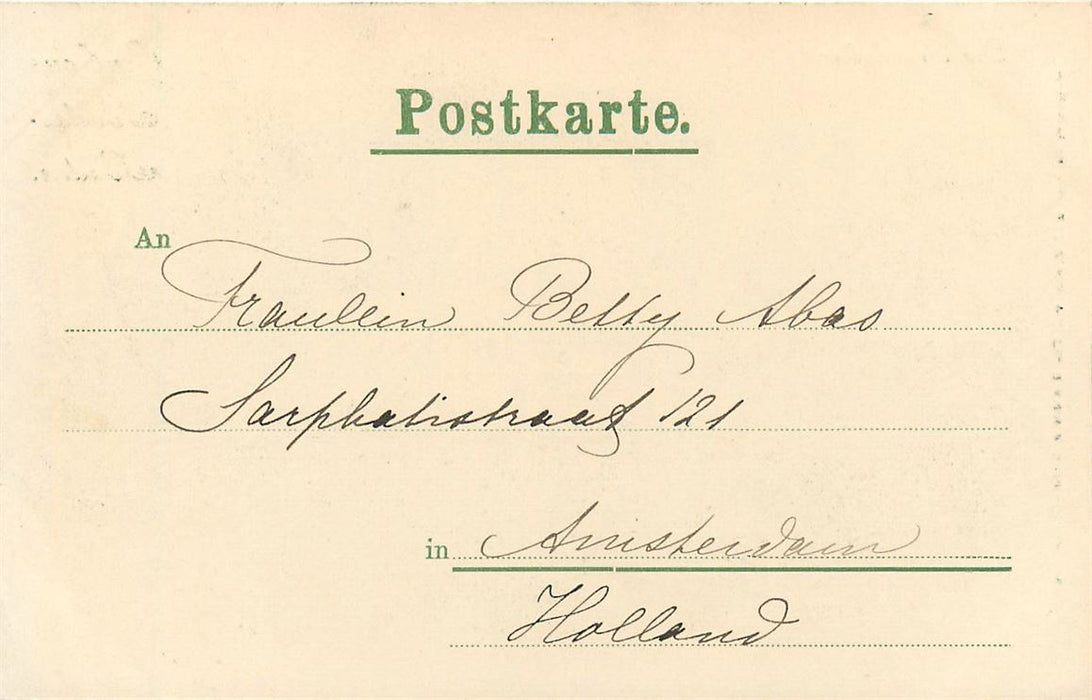 Postkarte.
An
Fraulein Betty Abas
Sarphatistraat 121
in Amsterdam
Holland